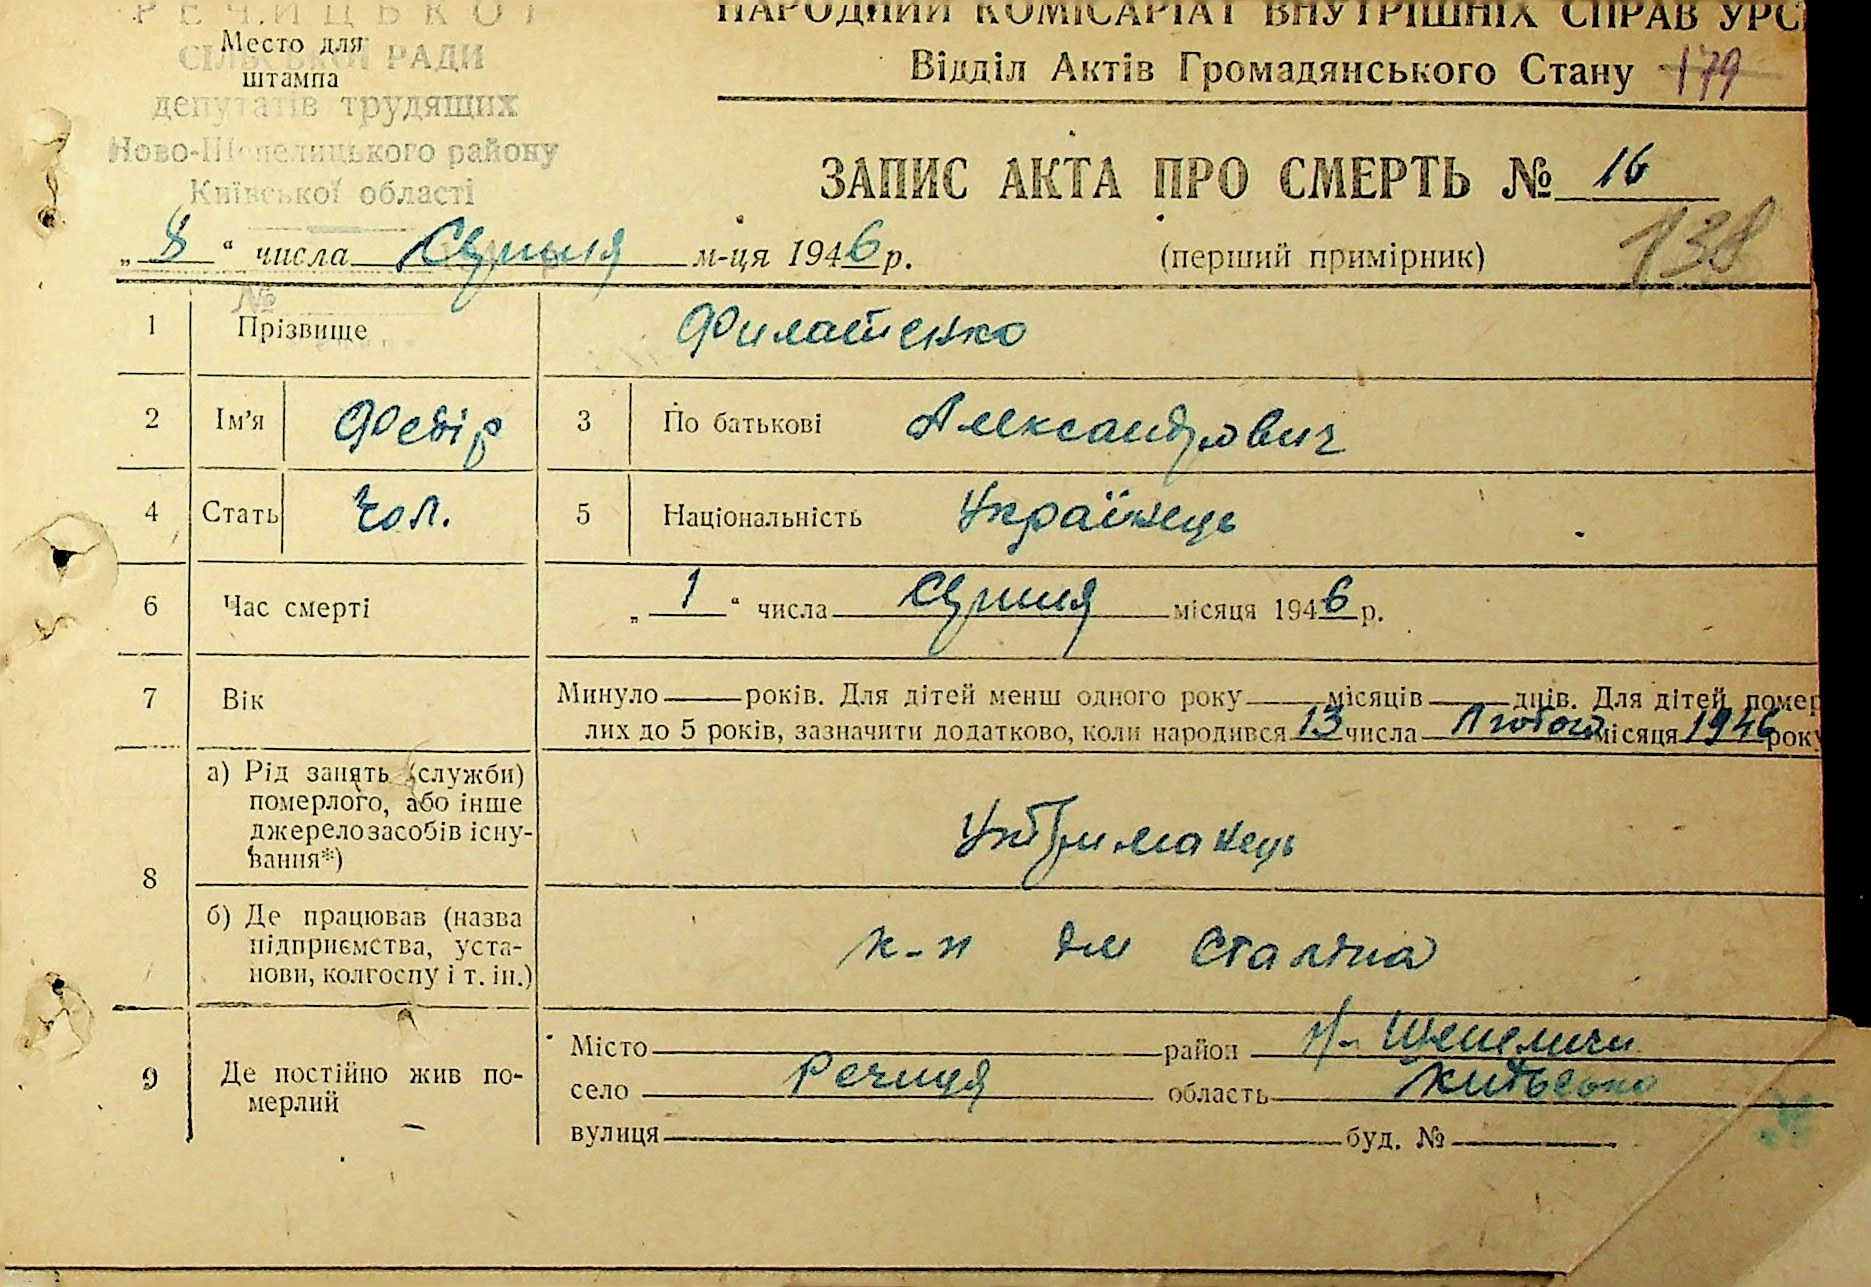 РЕЧИЦЬКОЇ
НАРОДНИЙ КОМІСАРІАТ ВНУТРІШНІХ СПРАВ УРС
Место для
штампа
СІЛЬСЬКОЇ РАДИ
Відділ Актів Громадянського Стану 179
депутатів трудящих
Ново-Шепелицького району
Київської області
ЗАПИС АКТА ПРО СМЕРТЬ № 16
138
„ 8 “ числа Серпня м-ця 1946 р. (перший примірник)
№
1 Прізвище Филатенко
2 Ім’я Федір 3 По батькові Александрович
4 Стать Чол. 5 Національність Українець
6 Час смерті „ 1 “ числа Серпня місяця 1946 р.
7 Вік Минуло — років. Для дітей менш одного року — місяців — днів. Для дітей помер
лих до 5 років, зазначити додатково, коли народився 13 числа Лютого місяця 1946 року
8 а) Рід занять (служби)
померлого, або інше
джерело засобів існу-
вання*)
Утриманець
б) Де працював (назва
підприємства, уста-
нови, колгоспу і т. ін.)
к-п ім Сталіна
9 Де постійно жив по-
мерлий
Місто район Н-Шепеличи
село Речиця область Київська
вулиця буд. №